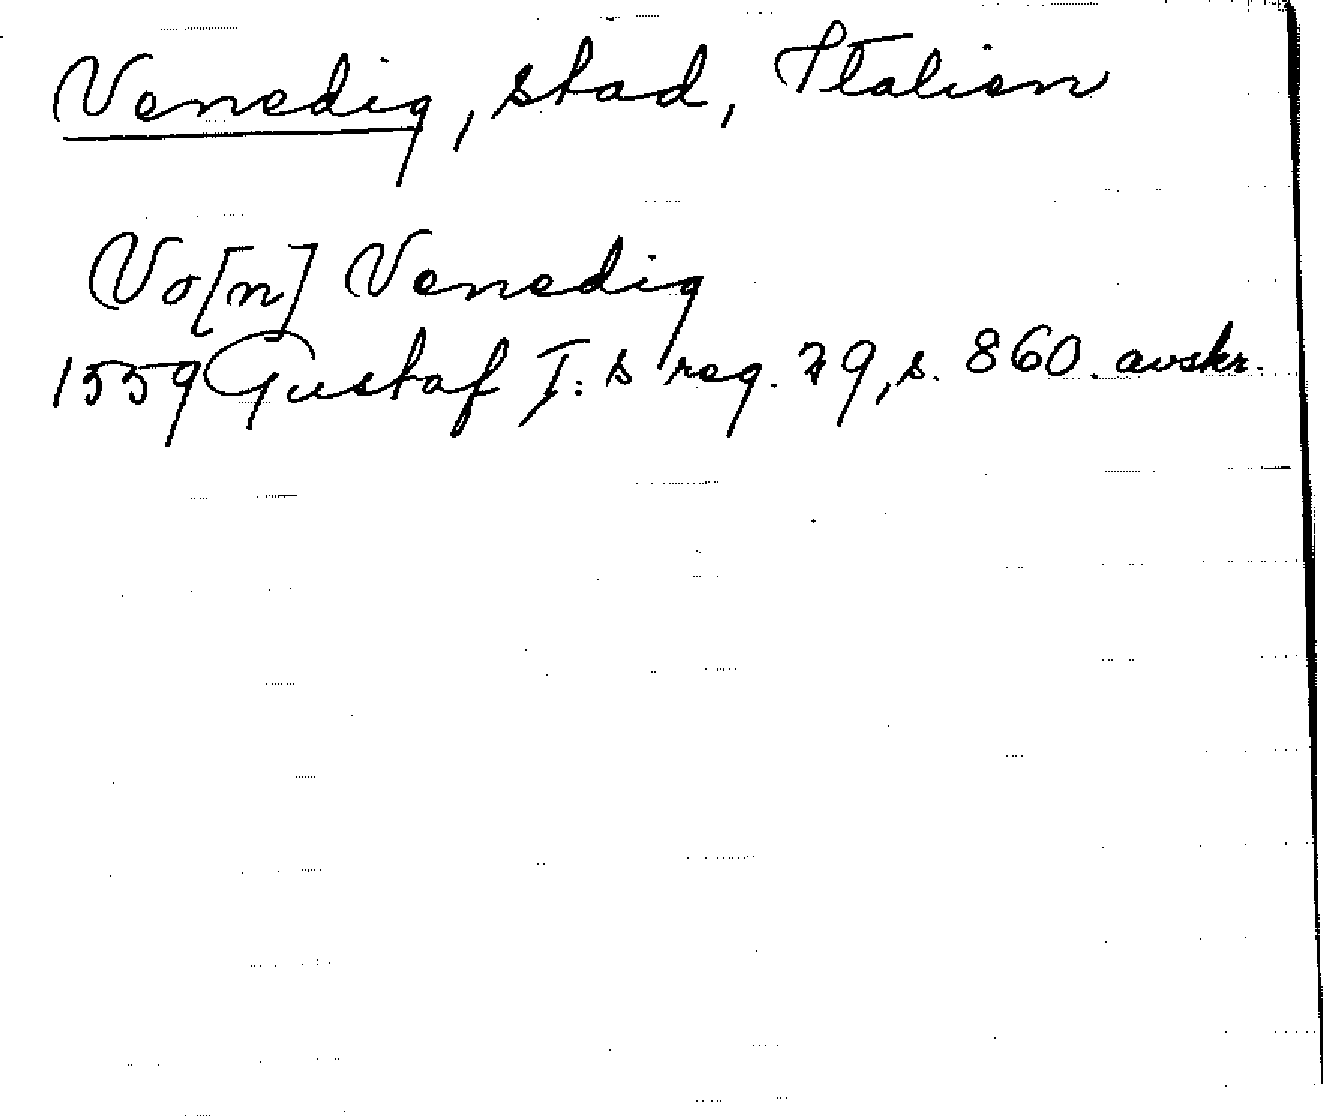 Venedig, stad, Italien
Vo[n] Venedig
1559 Gustaf I:s reg. 29, s. 860. avskr.